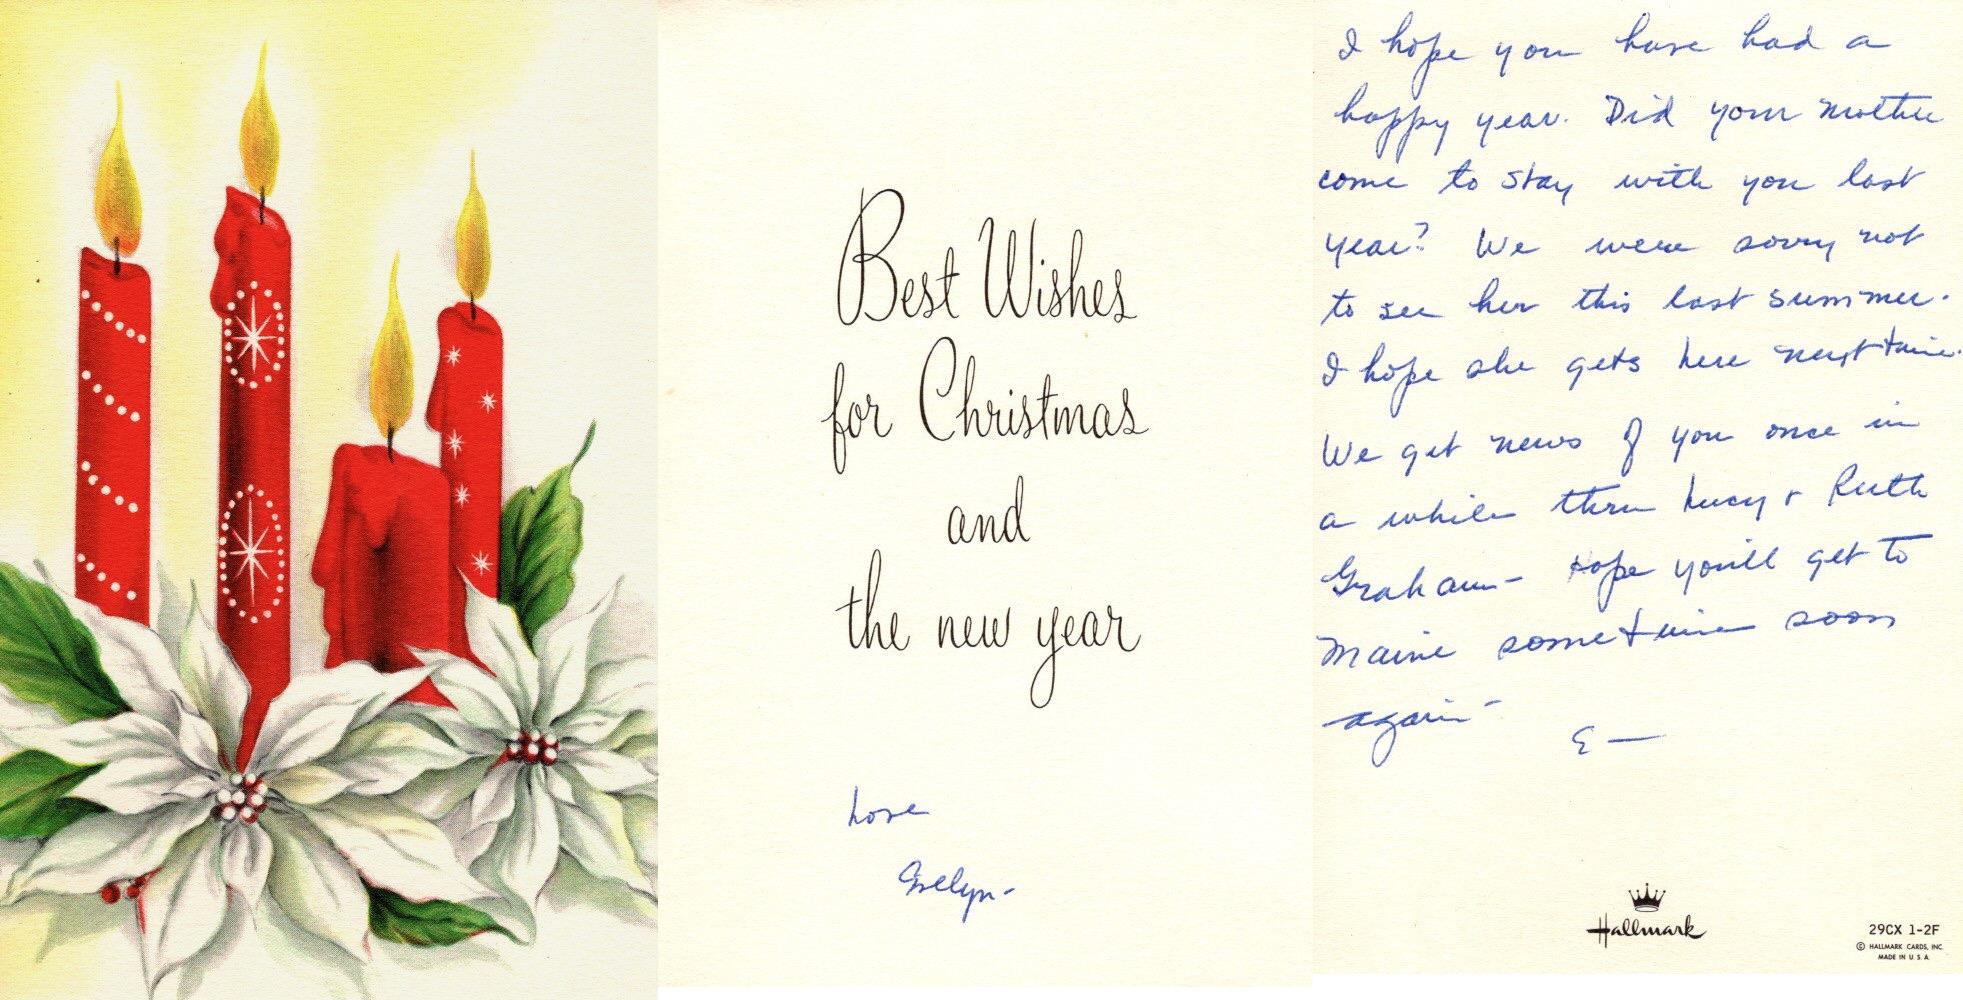 Best Wishes
for Christmas
and
the new year
Love
Evelyn-
I hope you have had a
happy year. Did your mother
come to stay with you last
year? We were sorry not
to see her this last summer.
I hope she gets here next time.
We get news of you once in
a while thru Lucy + Ruth
Graham- Hope you'll get to
Maine sometime soon
again-
E—
Hallmark
29CX 1-2F
© HALLMARK CARDS, INC.
MADE IN U.S.A.